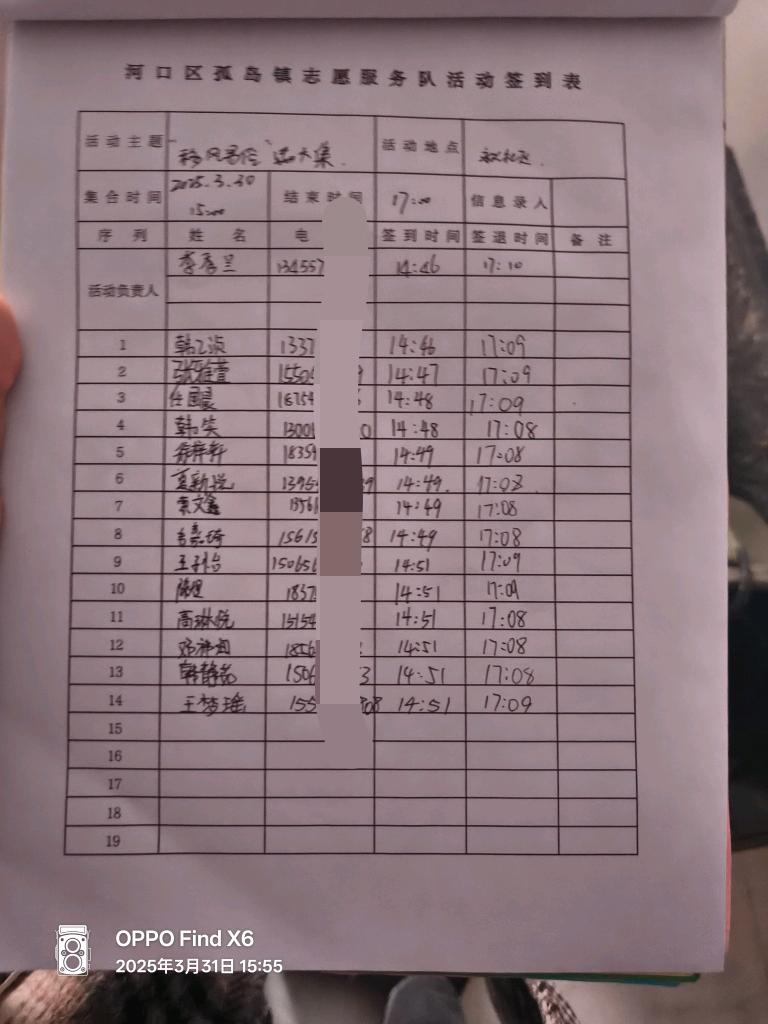 河口区孤岛镇志愿服务队活动签到表
活动主题 “移风易俗”赶大集 活动地点
集合时间 2025.3.30 15:00 结束时间 17:00 信息录人
序列 姓名 电 签到时间 签退时间 备注
活动负责人 李秀兰 134557 14:46 17:10
1 韩乙浈 1337 14:46 17:09
2 张雅萱 1550 9 14:47 17:09
3 任国晨 18754 14:48 17:09
4 韩笑 1300 0 14:48 17:08
5 徐梓轩 1835 14:49 17:08
6 新悦 1395 39 14:49. 17:08.
7 文鑫 1356 14:49 17:08
8 嘉琦 1561 8 14:49 17:08
9 王子怡 15065 14:51 17:09
10 陈 1837 14:51 17:09
11 高琳悦 15154 14:51 17:08
12 邓 1856 14:51 17:08
13 韩静茹 1506 3 14:51 17:08
14 王梦瑶 155 08 14:51 17:09
15
16
17
18
19
OPPO Find X6
2025年3月31日 15:55